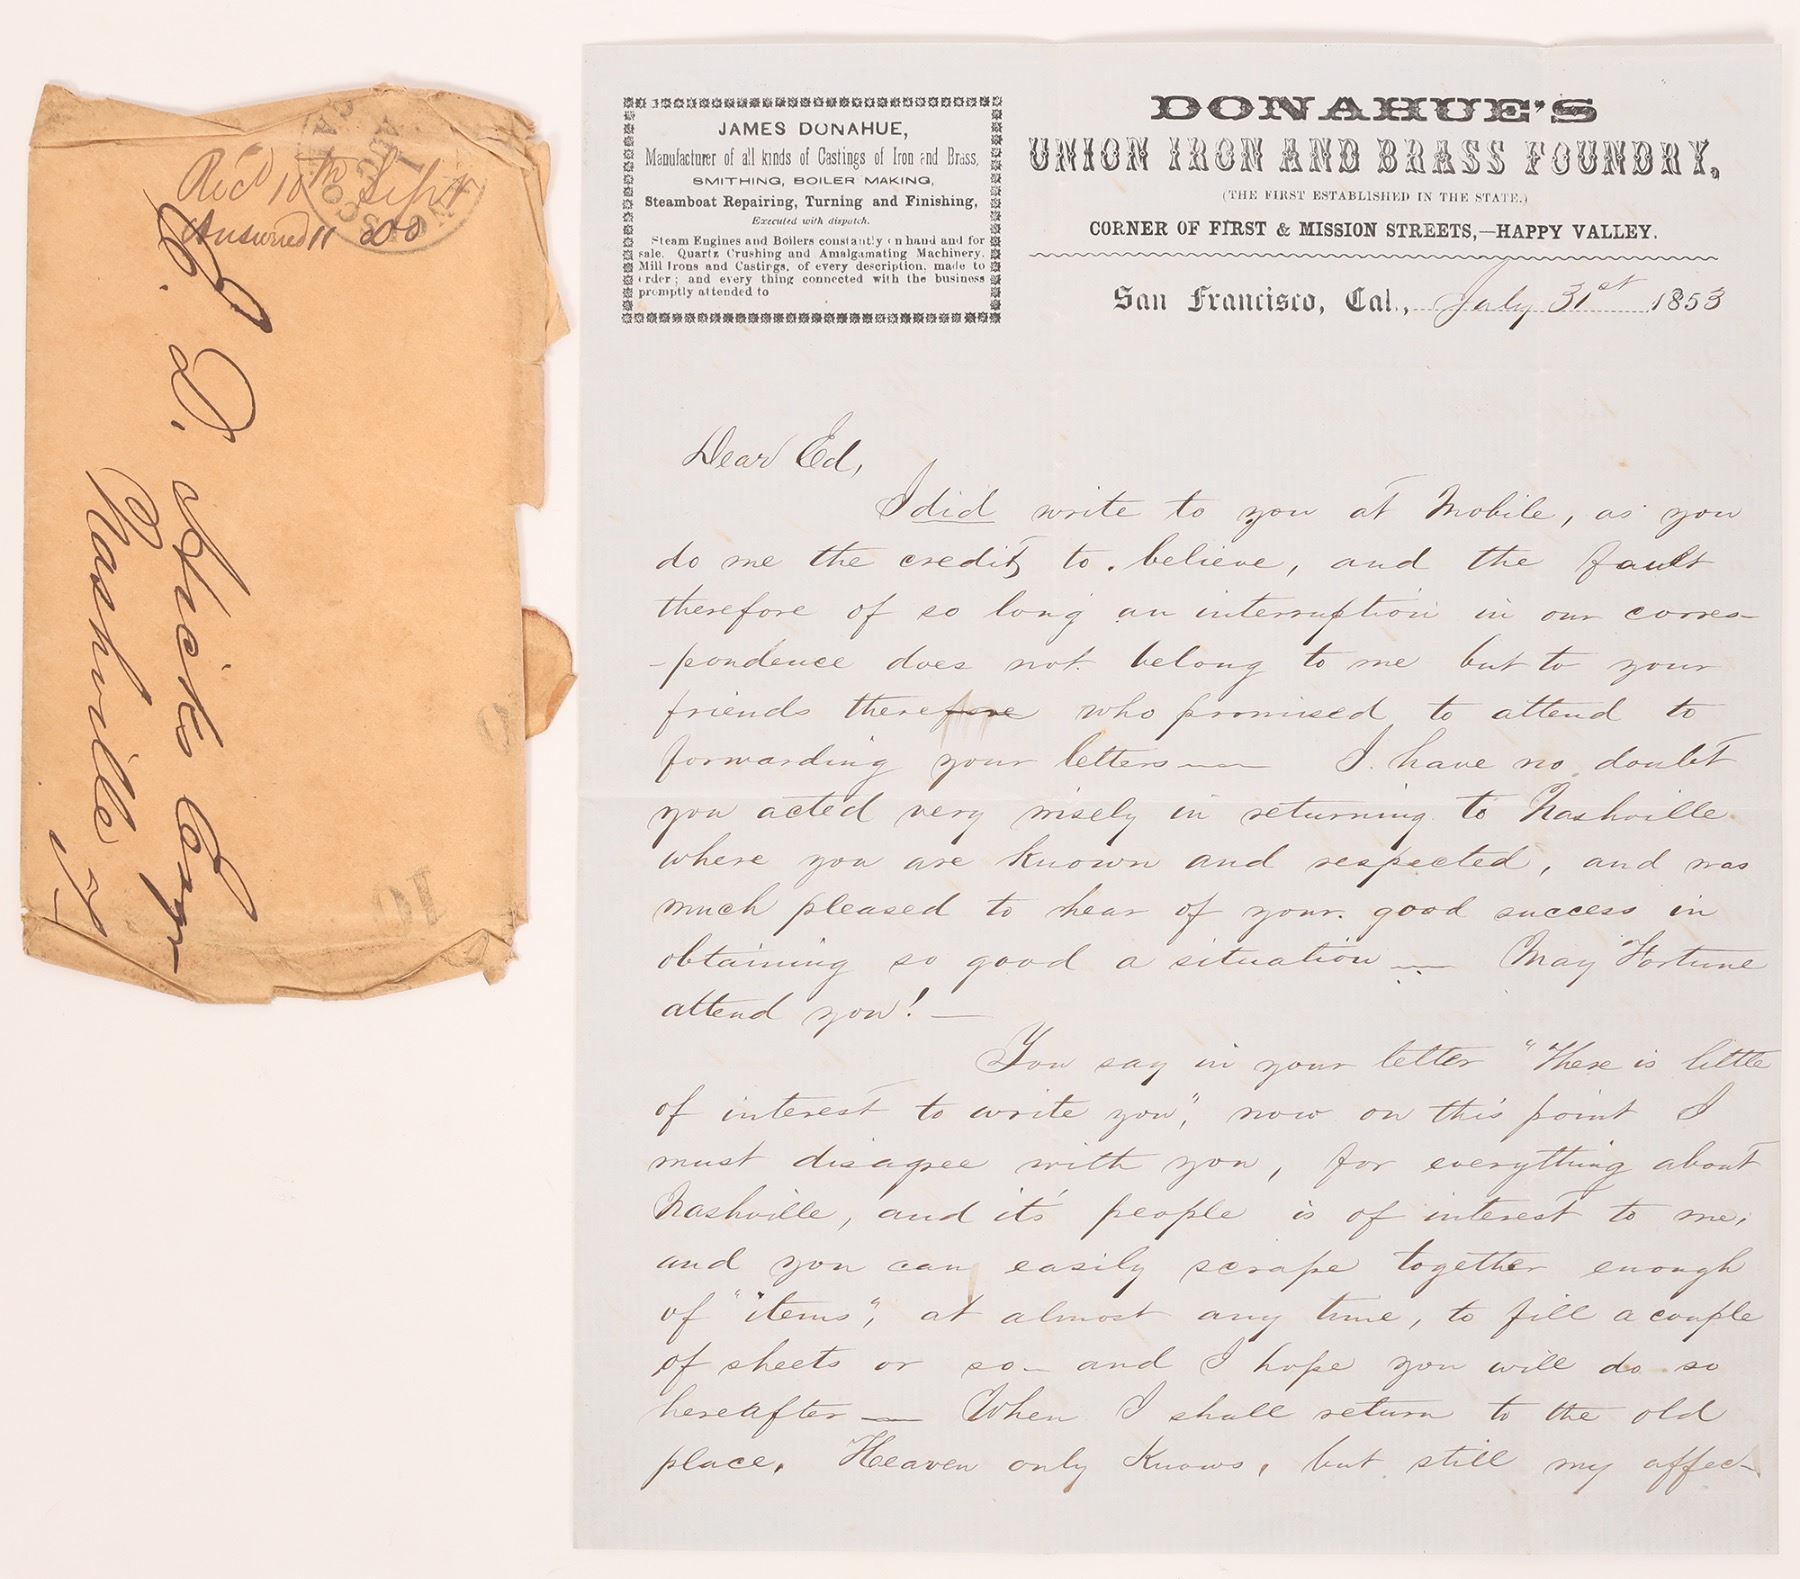 Rec'd 10th Sept
Answered 11
E. D. Hicks Esqr
Nashville
10
JAMES DONAHUE,
Manufacturer of all kinds of Castings of Iron and Brass,
SMITHING, BOILER MAKING,
Steamboat Repairing, Turning and Finishing,
Executed with dispatch.
Steam Engines and Boilers constantly on hand and for
sale. Quartz Crushing and Amalgamating Machinery,
Mill Irons and Castings, of every description, made to
order; and every thing connected with the business
promptly attended to
DONAHUE'S
UNION IRON AND BRASS FOUNDRY,
(THE FIRST ESTABLISHED IN THE STATE.)
CORNER OF FIRST & MISSION STREETS,—HAPPY VALLEY.
San Francisco, Cal., July 31st 1853
Dear Ed,
I did write to you at Mobile, as you
do me the credit to believe, and the fault
therefore of so long an interruption in our corres-
-pondence does not belong to me but to your
friends therefore who promised to attend to
forwarding your letters — I have no doubt
you acted very wisely in returning to Nashville
where you are known and respected, and was
much pleased to hear of your good success in
obtaining so good a situation — May Fortune
attend you! —
You say in your letter "There is little
of interest to write you", now on this point I
must disagree with you, for everything about
Nashville, and it's people is of interest to me,
and you can easily scrape together enough
of "items", at almost any time, to fill a couple
of sheets or so — and I hope you will do so
hereafter — When I shall return to the old
place, Heaven only knows, but still my affec-